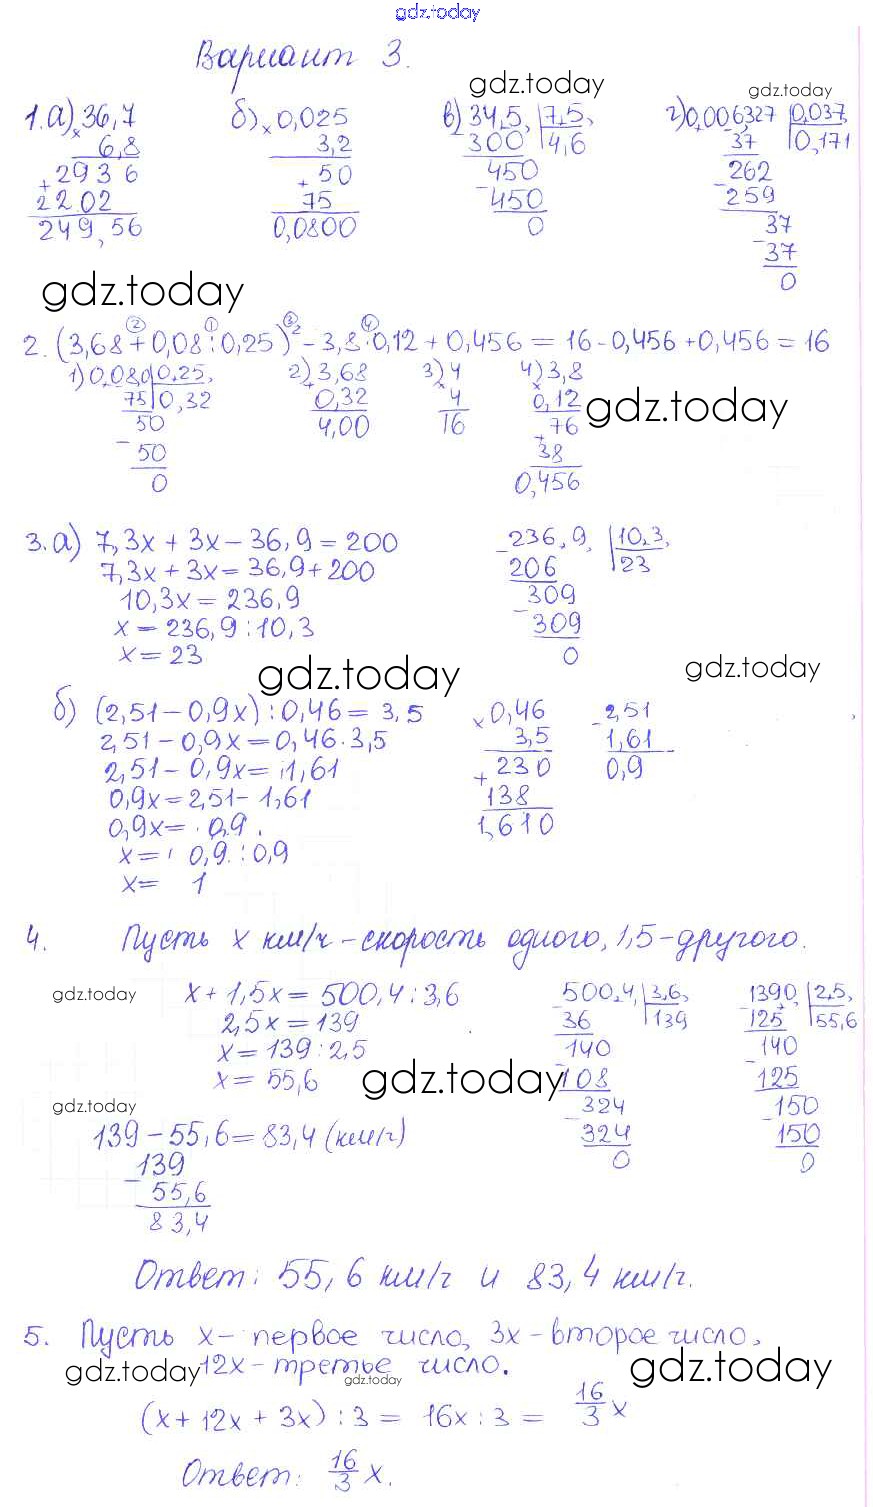 gdz.today
Вариант 3.
gdz.today gdz.today
1. а) 36,7 б) 0,025 в) 34,5, 7,5, г) 0,006,327 0,037,
× 6,8 × 3,2 - 300 4,6 - 37 0,171
+ 2936 + 50 450 262
2202 75 - 450 - 259
249,56 0,0800 0 37
- 37
0
gdz.today
2. (3,68 + 0,08 : 0,25)² - 3,8 · 0,12 + 0,456 = 16 - 0,456 + 0,456 = 16
1) 0,08,0 0,25, 2) 3,68 3) 4 4) 3,8
75 0,32 + 0,32 × 4 × 0,12 gdz.today
50 4,00 16 + 76
- 50 38
0 0,456
3. а) 7,3x + 3x - 36,9 = 200 236,9, 10,3,
7,3x + 3x = 36,9 + 200 - 206 23
10,3x = 236,9 309
x = 236,9 : 10,3 - 309
x = 23 0
gdz.today gdz.today
б) (2,51 - 0,9x) : 0,46 = 3,5 × 0,46 - 2,51
2,51 - 0,9x = 0,46 · 3,5 3,5 1,61
2,51 - 0,9x = 1,61 + 230 0,9
0,9x = 2,51 - 1,61 138
0,9x = 0,9 1,610
x = 0,9 : 0,9
x = 1
4. Пусть x км/ч - скорость одного, 1,5 - другого.
gdz.today x + 1,5x = 500,4 : 3,6 500,4, 3,6, 1390, 2,5,
2,5x = 139 - 36 139 - 125 55,6
x = 139 : 2,5 140 140
x = 55,6 gdz.today - 108 - 125
gdz.today 324 150
139 - 55,6 = 83,4 (км/ч) - 324 - 150
139 0 0
- 55,6
83,4
Ответ: 55,6 км/ч и 83,4 км/ч.
5. Пусть x - первое число, 3x - второе число,
gdz.today 12x - третье число. gdz.today gdz.today
(x + 12x + 3x) : 3 = 16x : 3 = 16/3 x
Ответ: 16/3 x.